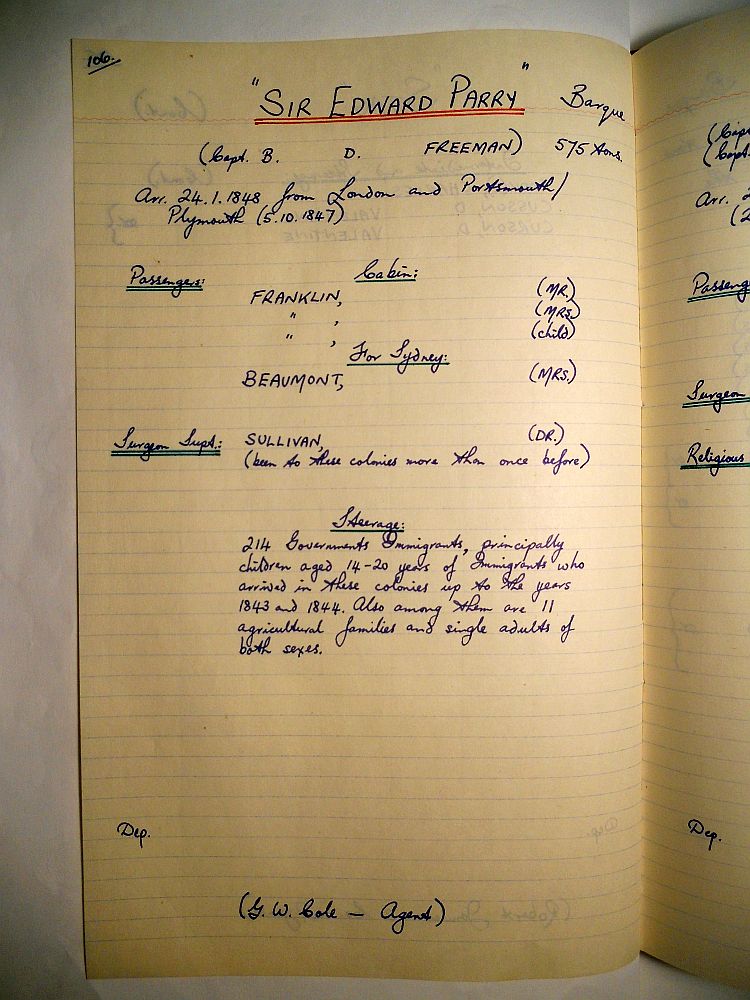 106.
"SIR EDWARD PARRY" Barque
(Capt. B. D. FREEMAN) 575 tons.
Arr. 24.1.1848 from London and Portsmouth/
Plymouth (5.10.1847)
Passengers: Cabin:
FRANKLIN, (MR.)
" , (MRS.)
" , (child)
For Sydney:
BEAUMONT, (MRS.)
Surgeon Supt.: SULLIVAN, (DR.)
(been to these colonies more than once before)
Steerage:
214 Governments Immigrants, principally
children aged 14-20 years of Immigrants who
arrived in these colonies up to the years
1843 and 1844. Also among them are 11
agricultural families and single adults of
both sexes.
Dep.
(G. W. Cole — Agent)
(Capt
(Capt.
Arr. 2
(2
Passeng
Surgeon
Religious
Dep.